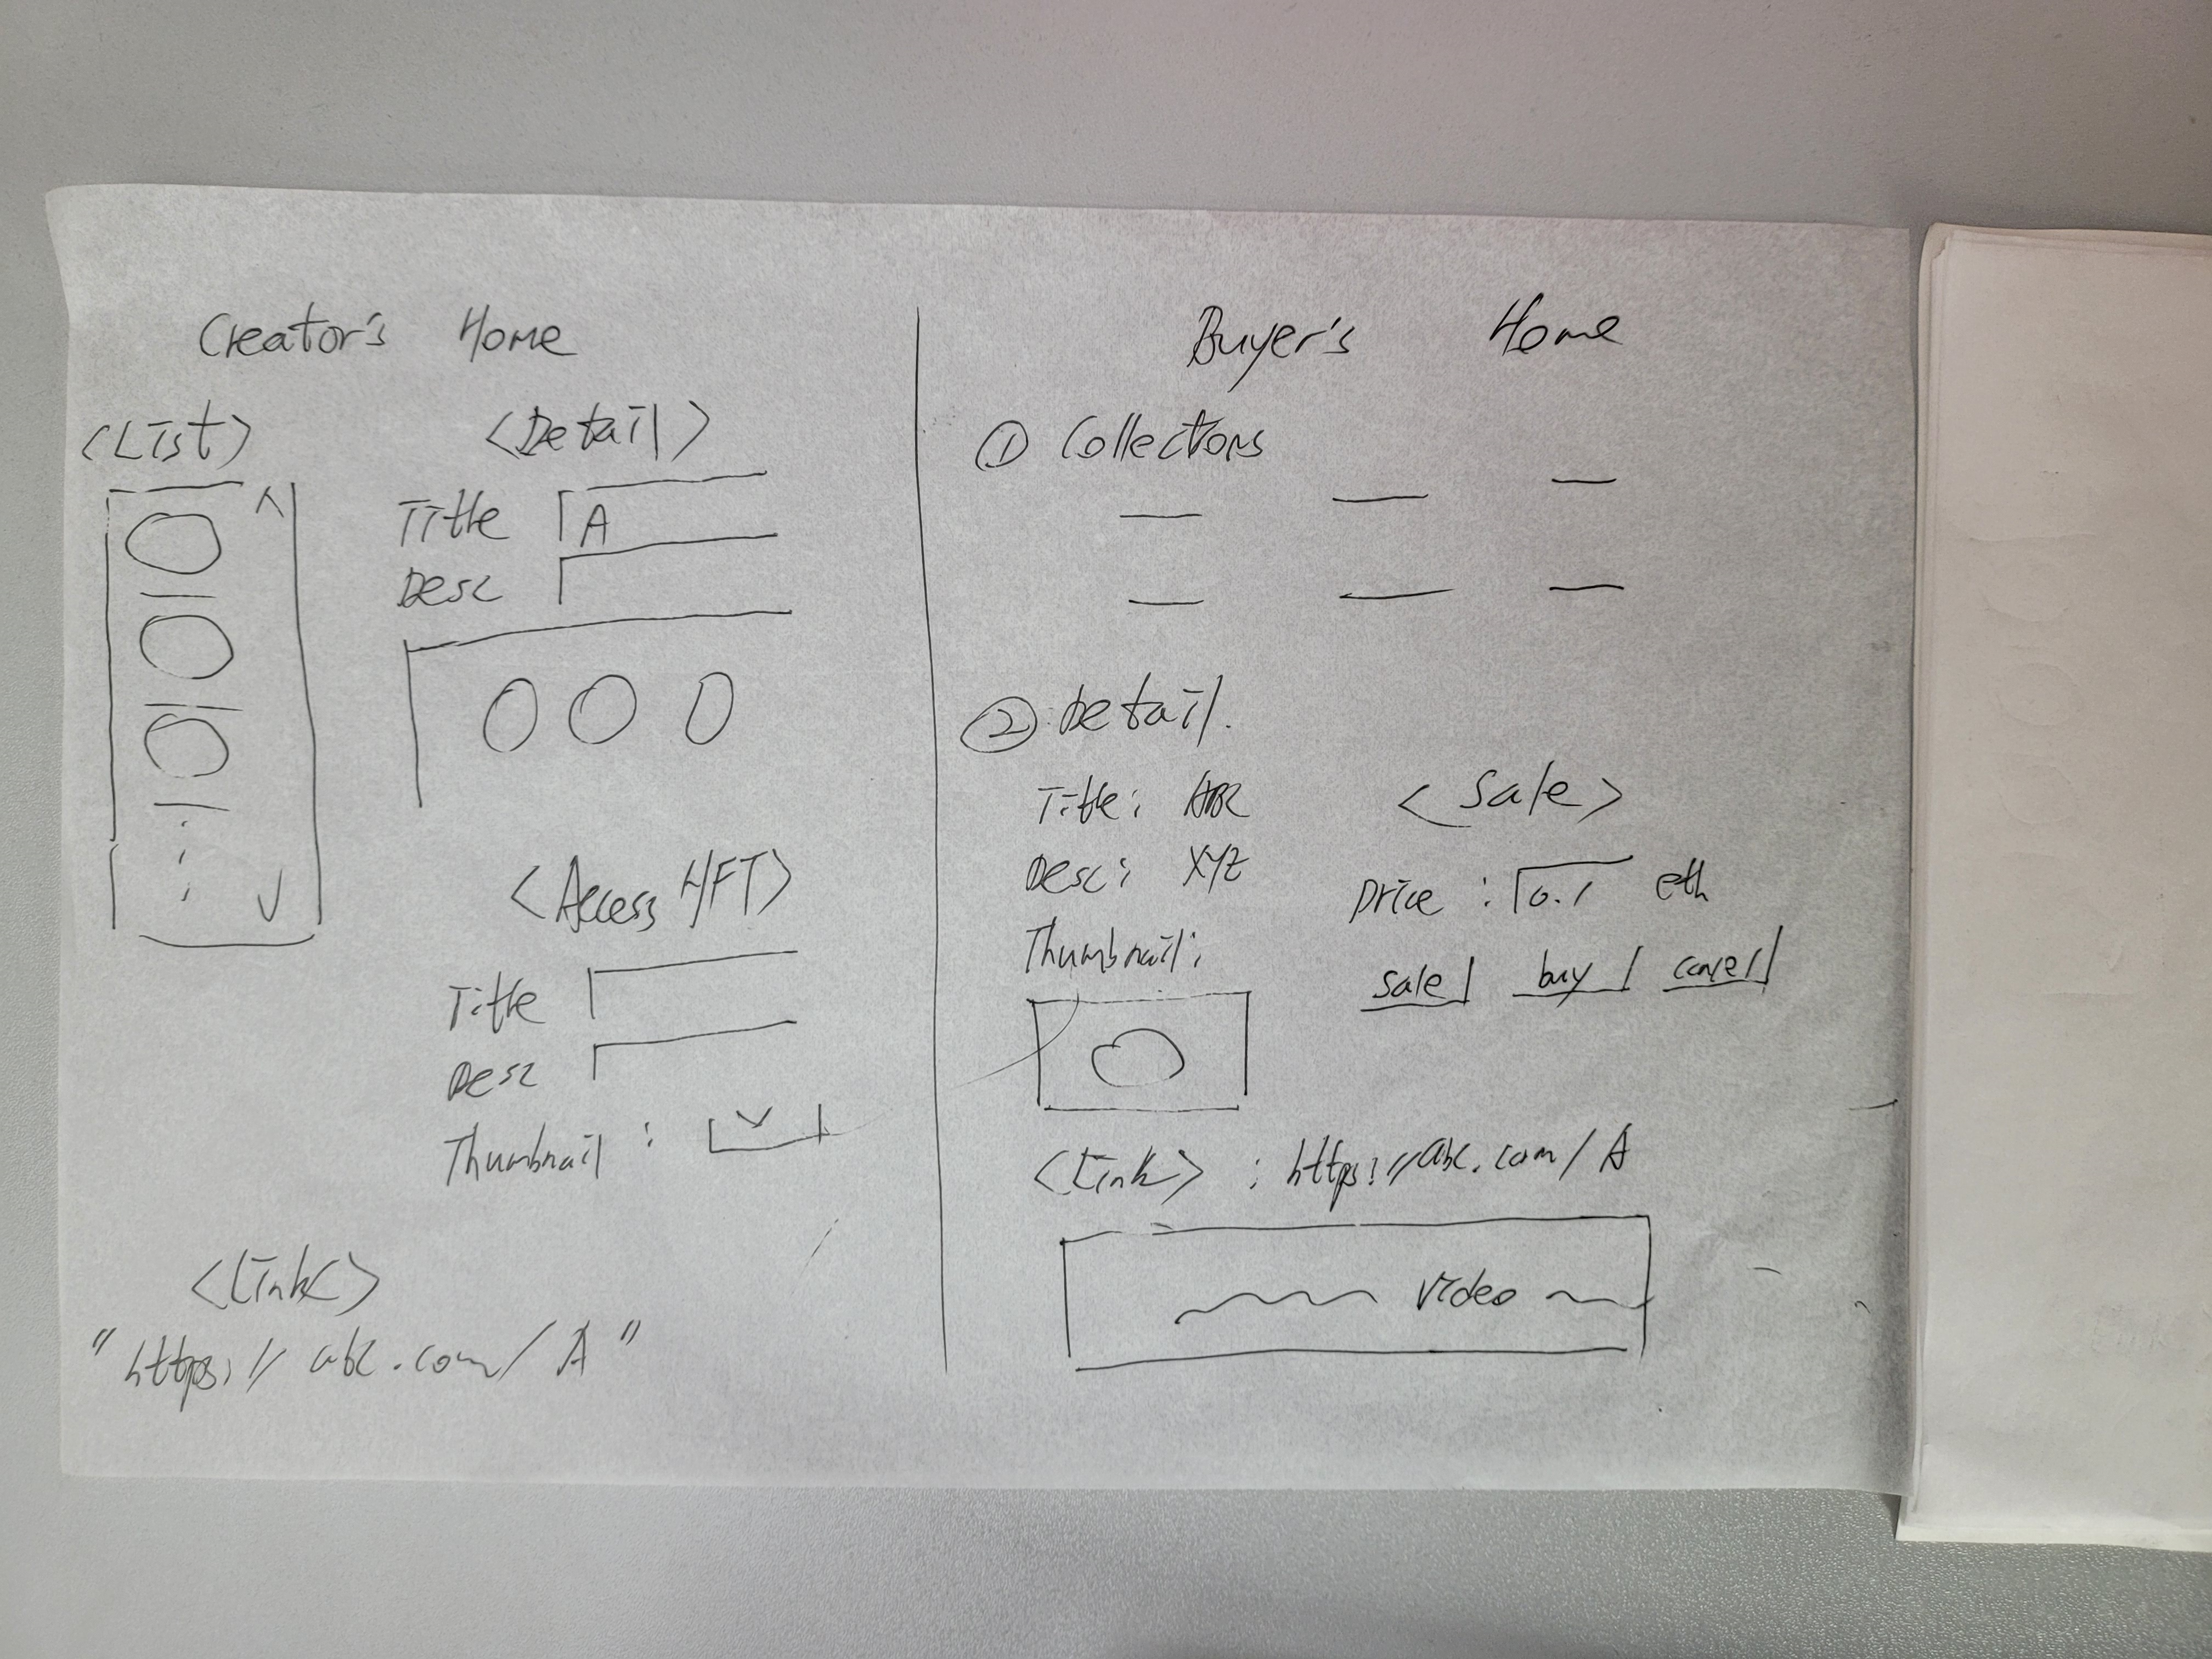 Creator's Home
<List>
<Detail>
Title A
Desc
<Access NFT>
Title
Desc
Thumbnail :
<Link>
"https://abc.com/A"
Buyer's Home
① Collections
② Detail.
Title: ABC
Desc: XYZ
Thumbnail:
<Sale>
price : 0.1 eth
sale buy cancel
<Link> : https://abc.com/A
Video